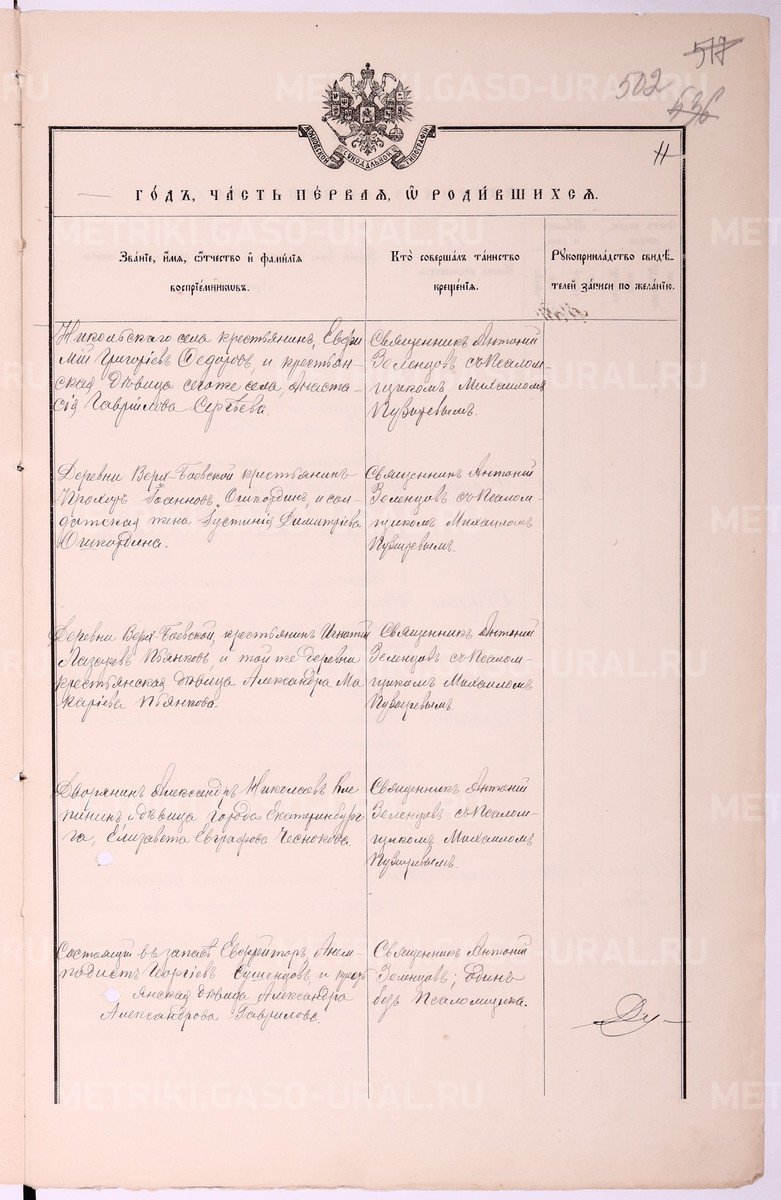 517
502
636
МОСКОВСКОЙ СѴНОДАЛЬНОЙ ТИПОГРАФІИ
11
ГО́ДЪ, ЧА́СТЬ ПЕ́РВАЯ, Ѡ҆ РОДИ́ВШИХСЯ.
Зва́ніе, и҆́мя, ѻ҆́тчество и҆ фами́лія
воспріе́мниковъ.
Кто̀ соверша́лъ та́инство
креще́нія.
Рꙋкоприкла́дство свидѣ́-
телей за́писи по жела́нію.
Никольскаго села крестьянинъ, Евфи
мій Григоріевъ Ѳедоровъ и крестьян-
ская дѣвица сего же села, Анаста-
сія Гавріилова Сергѣева.
Священникъ Антоній
Зеленцовъ съ Псалом-
щикомъ Михаиломъ
Деревни Верх-Боевской крестьянинъ
Прохоръ Іоанновъ Ошкординъ, и сол-
датская жена Іустинія Димитріева
Ошкордина.
Священникъ Антоній
Зеленцовъ съ Псалом-
щикомъ Михаиломъ
Деревни Верх-Боевской, крестьянинъ Игнатій
Пьянковъ и той же деревни
крестьянская дѣвица Александра Ма
каріева Пьянкова.
Священникъ Антоній
Зеленцовъ съ Псалом-
щикомъ Михаиломъ
Дворянинъ Александръ Николаевъ Кле
пининъ и дѣвица города Екатеринбур
га, Елизавета Евграфова Чеснокова.
Священникъ Антоній
Зеленцовъ съ Псалом-
щикомъ Михаиломъ
Состоящій въ запасѣ Ефрейторъ, Анем-
подистъ Георгіевъ Сушенцовъ и крест
янская дѣвица Александра
Александрова Гаврилова.
Священникъ Антоній
Зеленцовъ; одинъ
безъ Псаломщика.
METRIKI.GASO-URAL.RU